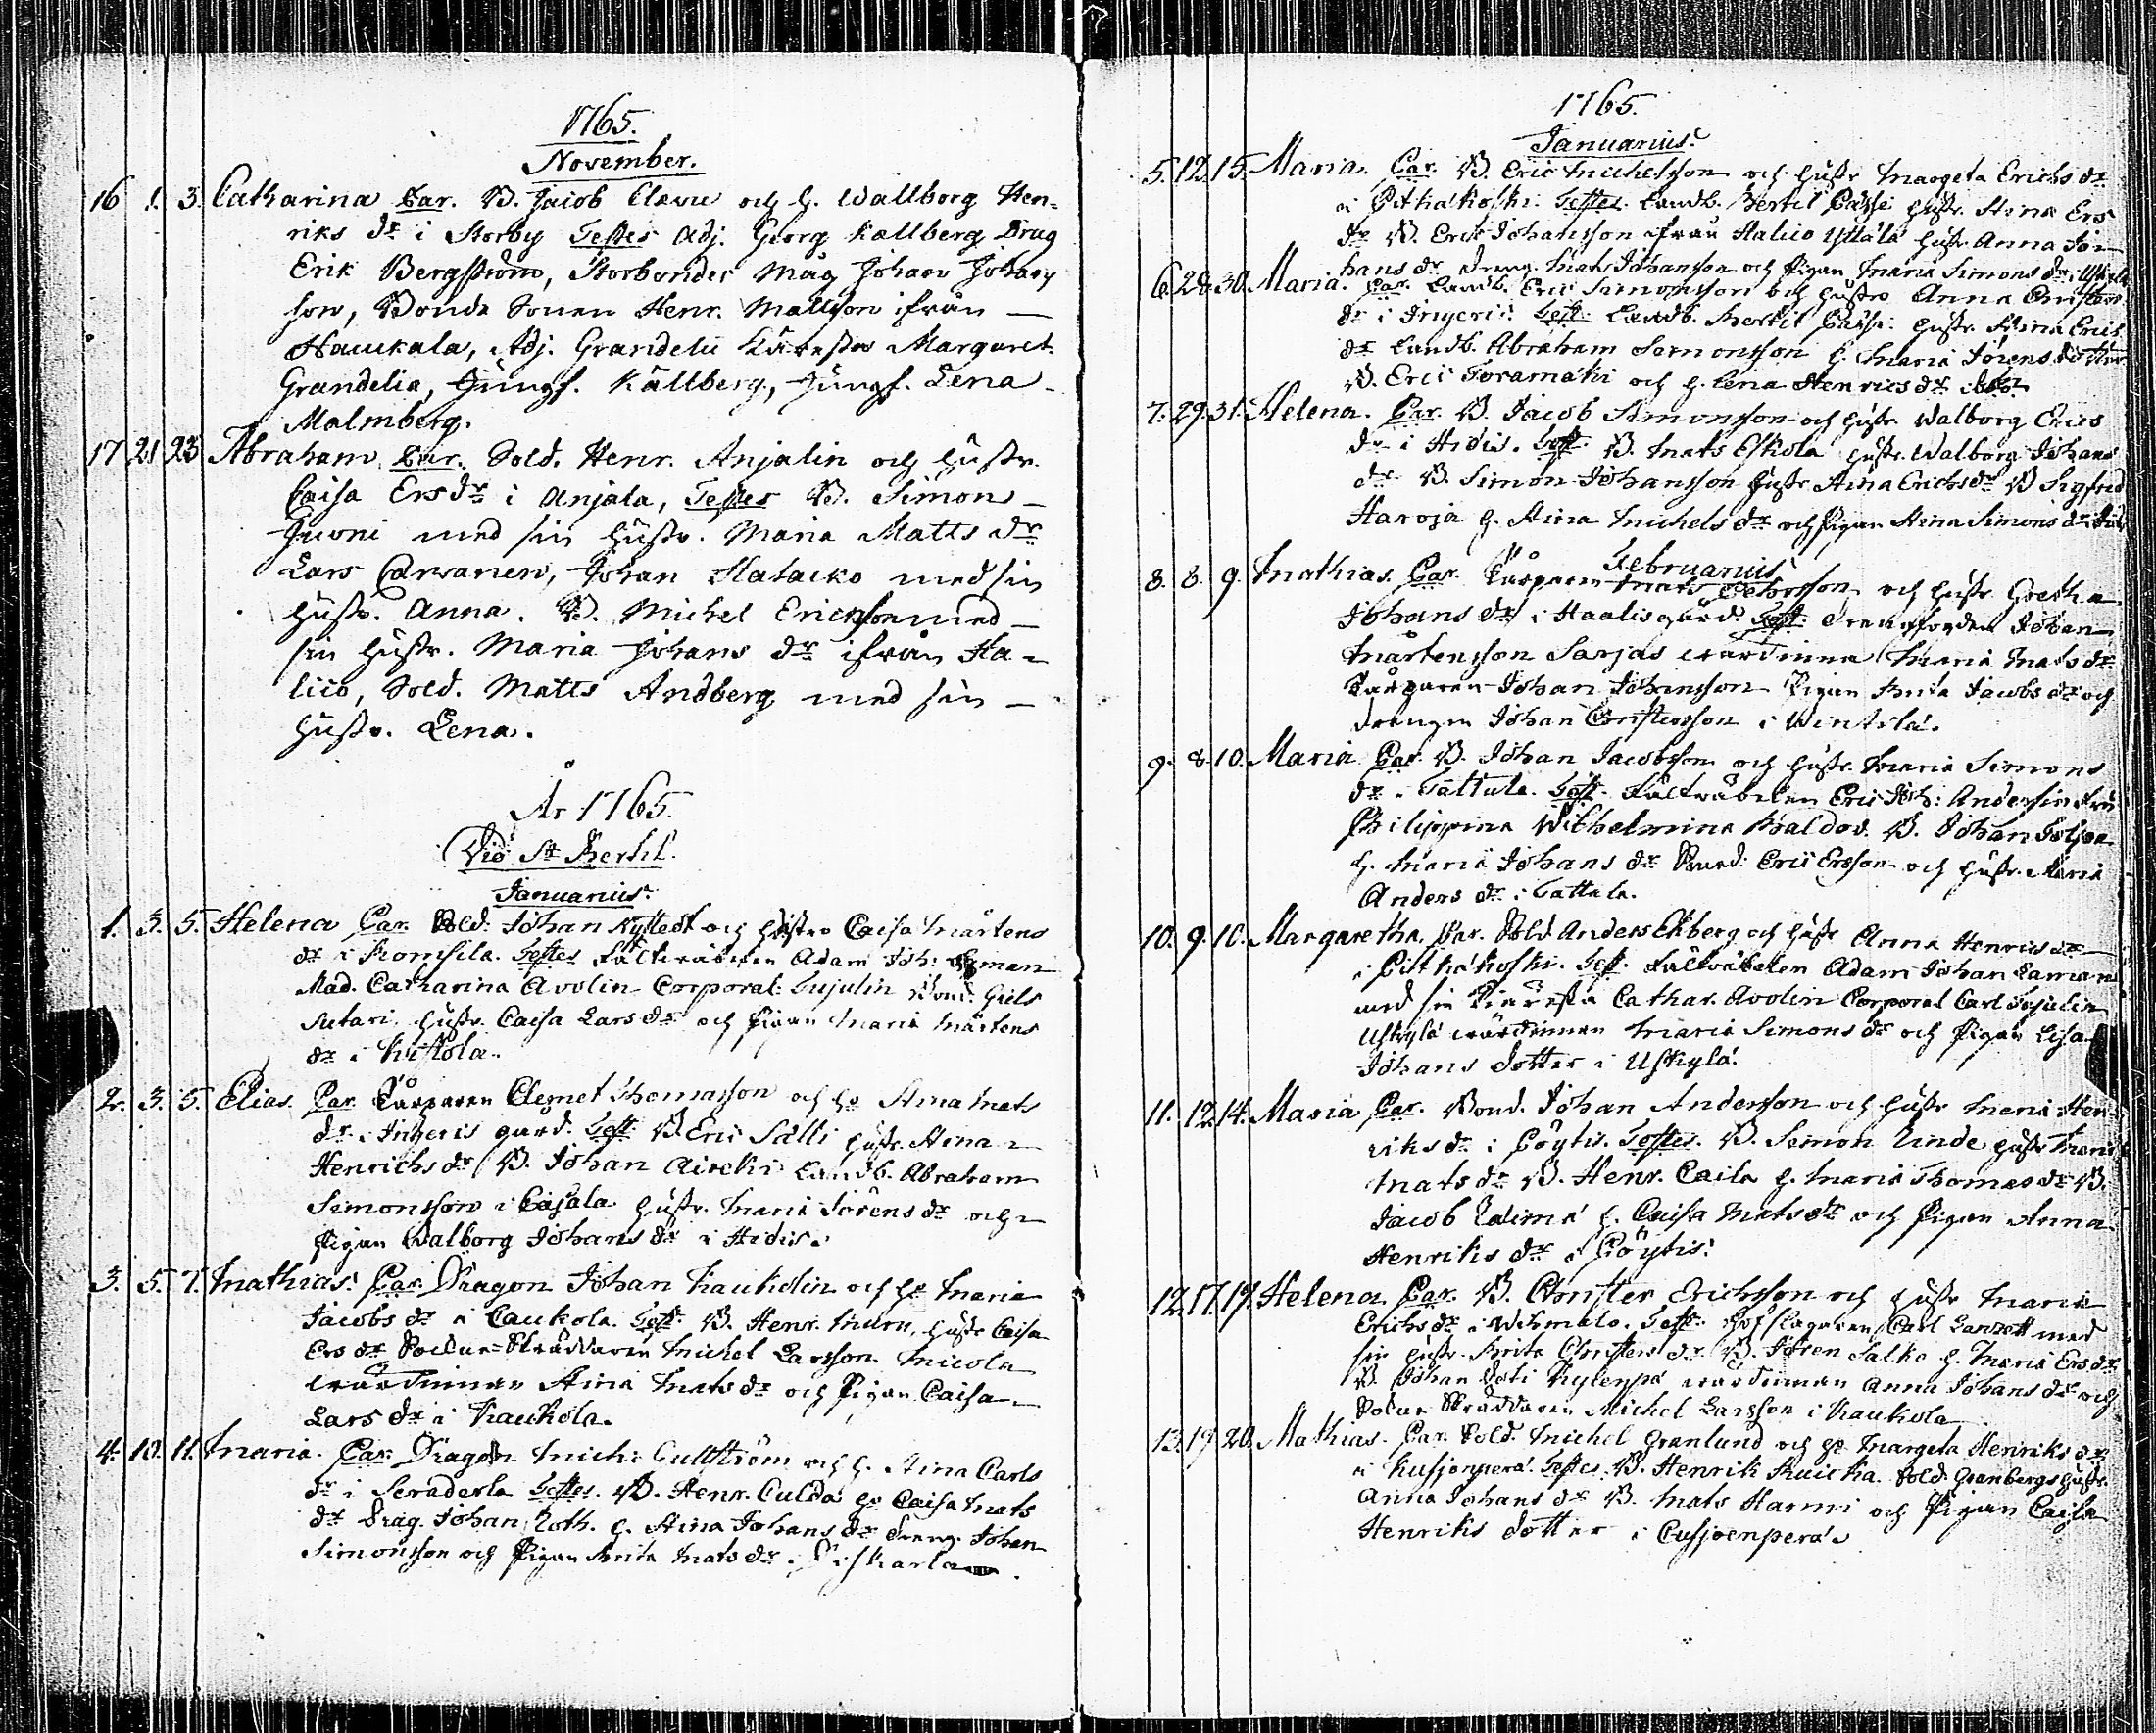 1765.
November.
16 1. 3. Catharina Par. B. Jacob Clavu och h. Wallborg Hen-
riks dr i Storby Testes Adj. Georg Kællberg Drag
Erik Bergström, Storbondes Måg Johan Johans
son, Bonde Sonen Henr. Mattson ifrån
Haukala, Adj. Grandelii Käresta Margaret.
Grandelia, Jungf. Källberg, Jungf. Lena
Malmberg.
17 21 23 Abraham Par. Sold. Henr. Anjalin och hustr.
Caisa Ersdr i Anjala, Testes B. Simon
Juoni med sin hustr. Maria Matts dr
Lars Carvanen, Johan Hatacko med sin
hustr. Anna. B. Michel Ericksson med
sin hustr. Maria Johans dr ifrån Ha-
lico, Sold. Matts Andberg med sin
hustr. Lena.
År 1765.
Vid St Bertil.
Januarius.
1. 3. 5. Helena Par. Sold. Johan Nystedt och hustro Caisa Mårtens
dr i Romsila. Testes Fältväbelen Adam Joh: Eman
Mad. Catharina Avolin Corporal Tujulin Bond. Giels
Sutari, hustr. Caisa Lars dr och Pigan Maria Mårtens
dr i Kustola.
2. 3. 5. Elias Par. Torparen Clemet Thomasson och h. Stina Mats
dr i Ingeris gård. Test. B. Eric Salli hustr. Stina
Henrichs dr B. Johan Aireki Landb. Abraham
Simonsson i Caisala hustr. Maria Jörens dr och
Pigan Walborg Johans dr i Hidis.
3. 5. 7. Mathias. Par. Dragon Johan Kaukolin och h. Maria
Jacobs dr i Caukola. Test. B. Henr. Muru, hustr Caisa
Ers dr Sockne-Skräddaren Michel Larsson Nicola
wärdinnan Stina Mats dr och Pigan Caisa
Lars dr i Kaukola.
4. 10. 11. Maria. Par. Dragon Mich: Cullström och h. Stina Carls
dr i Seraderla Testes. B. Henr. Culda h. Caisa Mats
dr Drag. Johan Roth. h. Stina Johans dr Dreng. Johan
Simonsson och Pigan Brita Mats dr i Piskarla
1765.
Januarius.
5. 12. 15. Maria. Par. B. Eric Michelsson och hustr Margeta Erichs dr
i Pitkäkoski. Testes. Landb. Bertil Passi hustr. Stina Ers
dr B. Eric Johansson ifrån Halico Yttälä hustr Anna Jo-
hans dr Dreng. Mats Johansson och Pigan Maria Simons dr i
6. 28. 30. Maria. Par. Landb. Eric Simonsson och hustro Anna Christers
dr i Ingeris. Test: Landb. Bertil Passi. hustr. Stina Erichs
dr Landb. Abraham Simonsson h. Maria Jörens dotter
B. Eric Toramäki och h. Lena Henrics dr
7. 29. 31. Helena. Par. B. Jacob Simonsson och hustr. Walborg Erics
dr i Hidis. Test. B. Mats Eskola hustr. Walborg Johans
dr B. Simon Johansson hustr Stina Erichs dr B Sigfred
Haroja h. Stina Michels dr och Pigan Stina Simons dr
Februarius
8. 8. 9. Mathias. Par. Torparen Mats Pehrsson och hustr Gretha
Johans dr i Haalis gård. Test. Johan
Mårtensson Sarjas wärdinna Maria Mats dr
Torparen Johan Johansson Pigan Brita Jacobs dr och
Drengen Johan Christersson i Wintala.
9. 8. 10. Maria Par. B. Johan Jacobsson och hustr. Maria Simons
dr i Tattula. Test. Fältväbelen Eric Joh: Andersin fru
Philippina Wilhelmina Baldov. B. Johan
h. Maria Johans dr Smed: Eric Ersson och hustr. Maria
Anders dr i Tattula.
10. 9. 10. Margaretha. Par. Sold Anders Ekberg och hustr Anna Henrics dr
i Pitkäkoski. Test. Fältväbelen Adam Johan Eaman
med sin Käresta Cathar. Avolin Corporal Carl Tujulin
Uskylä wärdinnan Maria Simons dr och Pigan Lisa
Johans dotter i Uskylä.
11. 12. 14. Maria Par. Bond. Johan Andersson och hustr Maria Hen-
riks dr i Pöytis. Testes. B. Simon Linde hustr Maria
Mats dr B. Henr. Caila h. Maria Thomas dr B.
Jacob h. Caisa Mats dr och Pigan Anna
Henriks dr i Pöytis.
12. 17. 19. Helena Par. B. Christer Erichsson och hustr Maria
Erichs dr i Wihmalo. Test: Hofslagaren Carl Lanzett med
sin hustr. Brita Christers dr B. Jören Salko h. Maria Ers dr
B Johan Kylenpä wärdinnan Anna Johans dr och
Sockne Skräddaren Michel Larsson i Kaukola
13. 19. 20. Mathias. Par. Sold. Michel Granlund och h. Margeta Henriks dr
i Kusjonperä. Testes. B. Henrik Kuicka Sold: Granbergs hustr.
Anna Johans dr B. Mats Harmi och Pigan Caisa
Henriks dotter i Cusjoenperä.